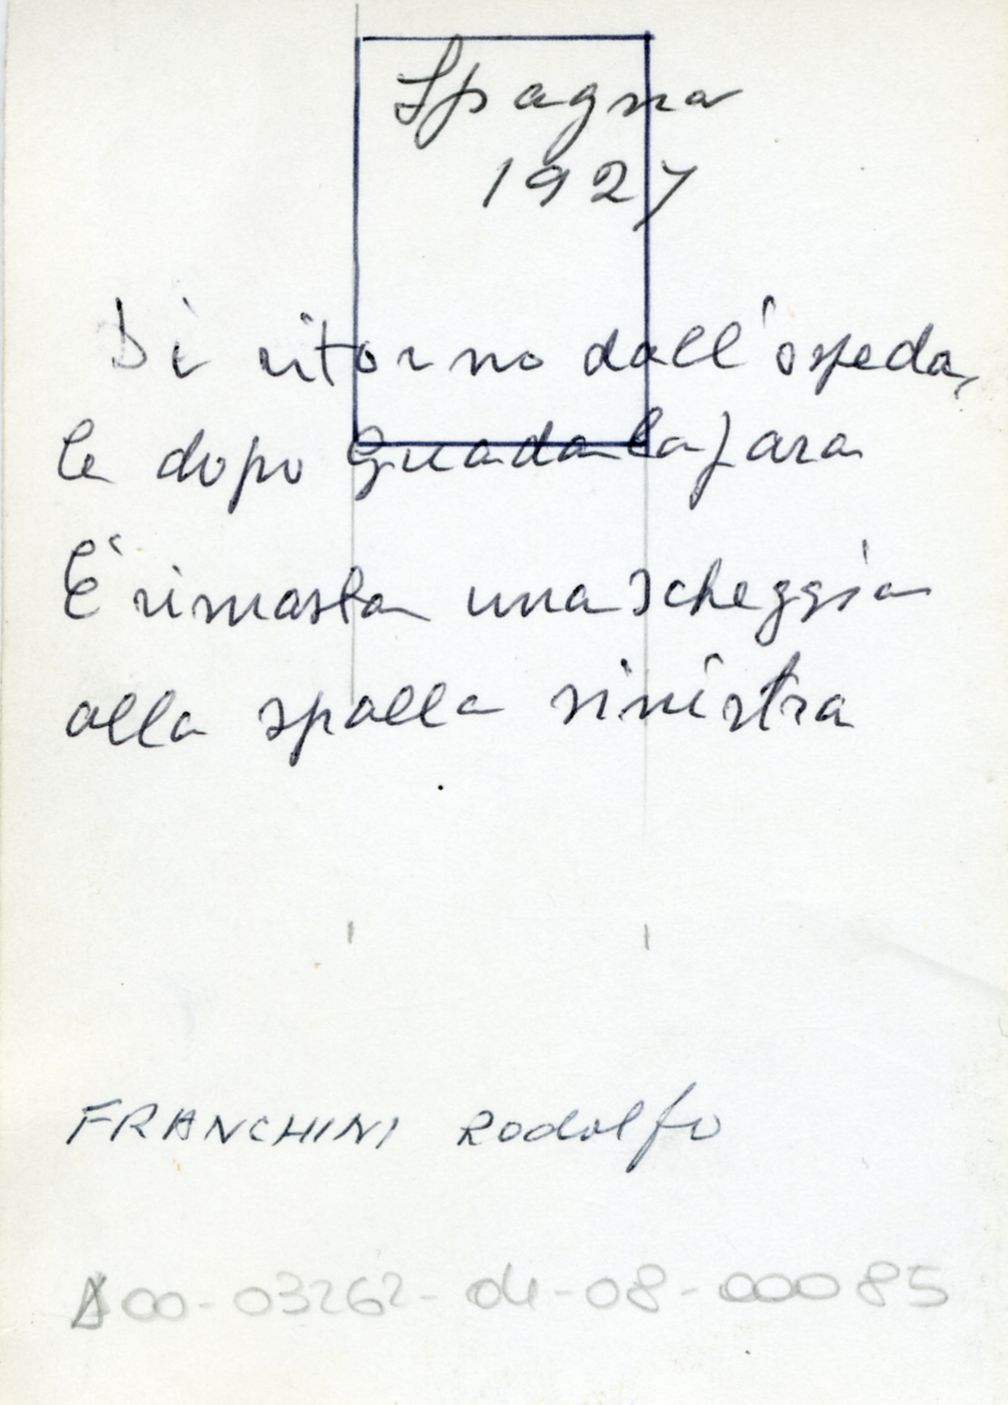 Spagna
1927
Di ritorno dall'ospeda,
le dopo Guadalajara
È rimasta una scheggia
alla spalla sinistra
FRANCHINI Rodolfo
A00-03262-04-08-000085